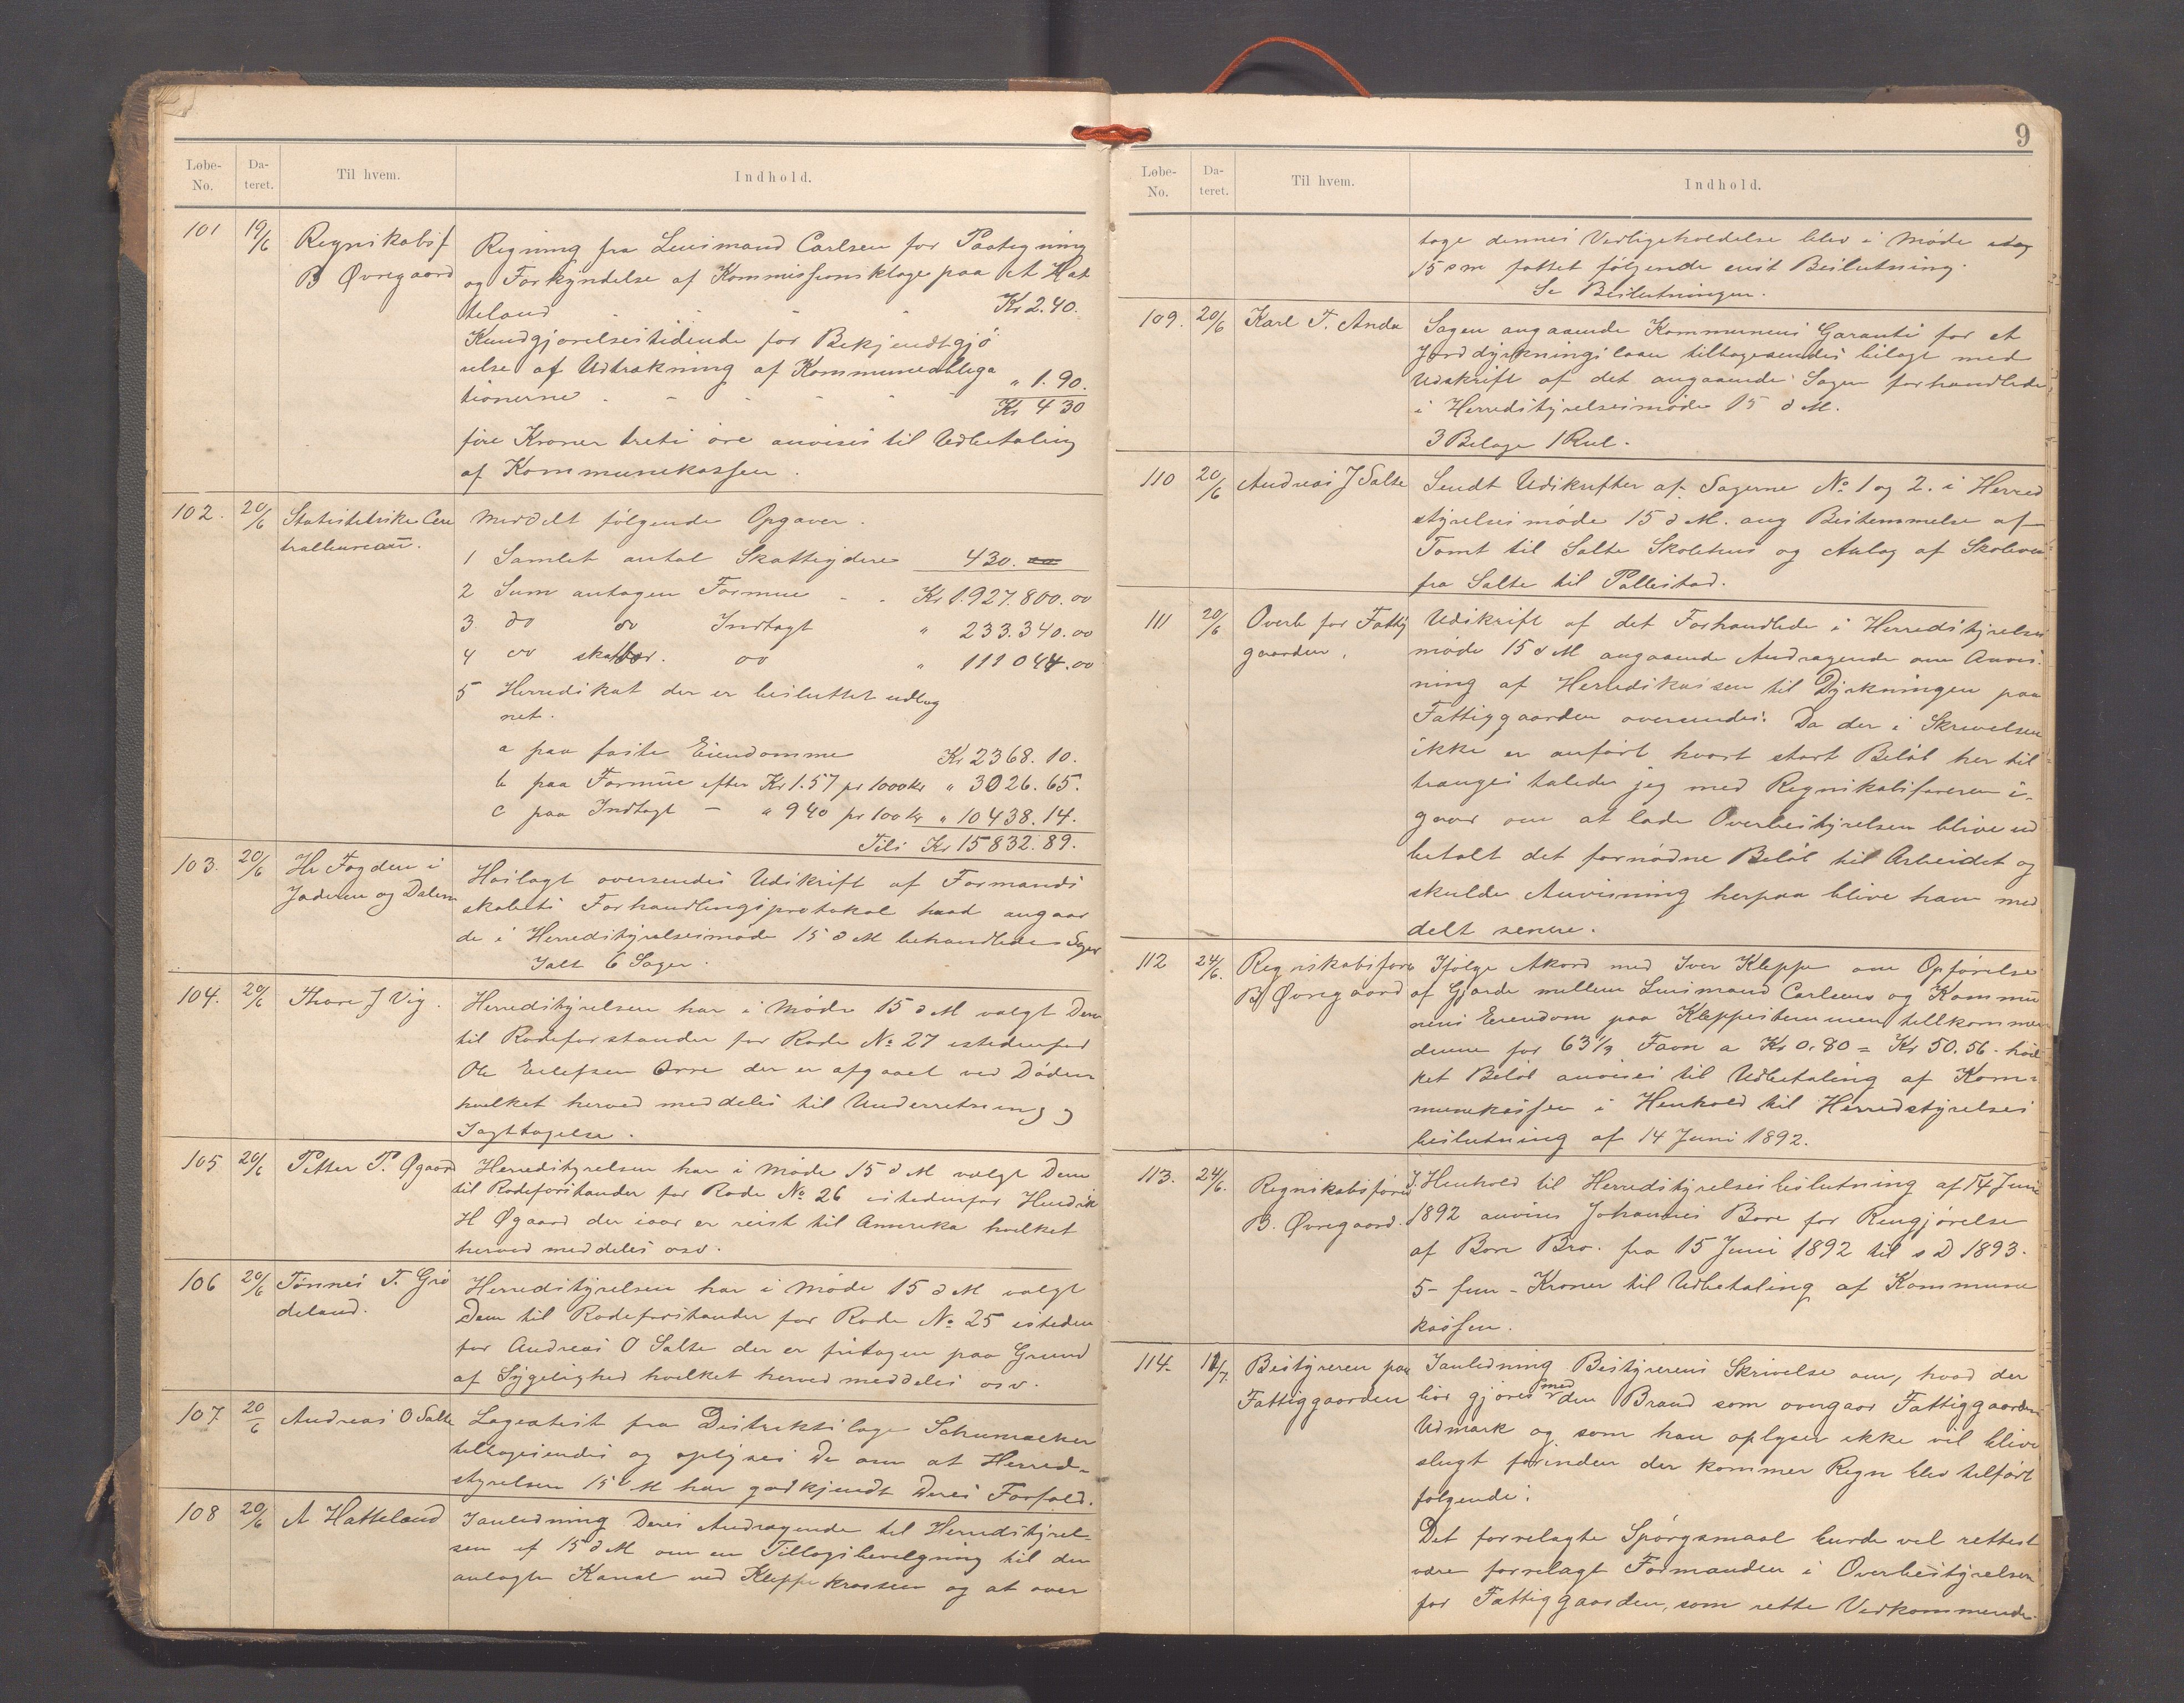 Løbe-No. Da-teret. Til hvem. Indhold.
101 19/6 Regnskabsf B Øvregaard
Regning fra Lensmand Carlsen for Paategning
og Forkyndelse af Kommissionsklage paa A Hat
teland Kr 2.40.
Kundgjørelsestidende for Bekjendtgjø
relse af Udtrækning af Kommuneobliga
tionerne " 1.90.
Kr 4 30
fire Kroner treti øre anvises til Udbetaling
af Kommunekassen.
102. 20/6 Statistiske Cen tralbureau.
Meddelt følgende Opgaver.
1 Samlet antal Skatteydere 430.
2 Sum antagen Formue Kr 1.927.800.00
3 do do Indtægt " 233.340.00
4 do skatbar do " 111044.00
5 Herredskat der er besluttet udlig
net.
a paa faste Eiendomme Kr 2368.10.
b paa Formue efter Kr 1.57 pr 1000 Kr " 3026.65.
c paa Indtægt - " 9 40 pr 100 Kr " 10438.14.
Tils Kr 15832.89.
103. 20/6 Hr Fogden i Jæderen og Dalerne
Hoslagt oversendes Udskrift af Formands
skabets Forhandlingsprotokol hvad angaar
de i Herredstyrelsesmøde 15 d M behandlede Sager
Ialt 6 Sager.
104. 20/6 Thore J Vig.
Herredstyrelsen har i Møde 15 d M valgt Dem
til Rodeforstander for Rode No 27 istedenfor
Ole Eilefsen Orre der er afgaaet ved Døden
hvilket herved meddeles til Underretning og
Iagttagelse.
105 20/6 Petter P. Øgaard
Herredstyrelsen har i Møde 15 d M valgt Dem
til Rodeforstander for Rode No 26 istedenfor Hendrik
H Øgaard der iaar er reist til Amerika hvilket
herved meddeles osv.
106 20/6 Tønnes T. Grø deland.
Herredstyrelsen har i Møde 15 d M valgt
Dem til Rodeforstander for Rode No 25 isteden
for Andreas O Salte der er fritagen paa Grund
af Sygelighed hvilket herved meddeles osv.
107 20/6 Andreas O Salte
Lægeattest fra Distriktslæge Schumacker
tilbagesendes og oplyses De om at Herred-
styrelsen 15 d M har godkjendt Deres Forfald.
108 20/6 A Hatteland
I anledning Deres Andragende til Herredstyrel-
sen af 15 d M om en Tillægsbevilgning til den
anlagte Kanal ved Kleppekrossen og at over
9
Løbe-No. Da-teret. Til hvem. Indhold.
tage dennes Vedligeholdelse blev i Møde
15 d m fattet følgende enst Beslutning.
Se Beslutningen.
109. 20/6 Karl T. Anda
Sagen angaaende Kommunens Garanti for et
Jorddyrkningslaan tilbagesendes bilagt med
Udskrift af det angaaende Sagen forhandlede
i Herredstyrelsesmøde 15 d M.
3 Bilage 1 Rul.
110 20/6 Andreas J Salte
Sendt Udskrifter af Sagerne No 1 og 2. i Herred
styrelsesmøde 15 d M. ang Bestemmelse af
Tomt til Salte Skolehus og Anlæg af Skolevei
fra Salte til Pallestad.
111 20/6 Overb for Fattig gaarden.
Udskrift af det Forhandlede i Herredstyrelses
møde 15 d M angaaende Andragende om Anvis
ning af Herredskassen til Dyrkningen paa
Fattiggaarden oversendes. Da der i Skrivelsen
ikke er anført hvort stort Beløb her til
trænges talede jeg med Regnskabsføreren i-
gaar om at lade Overbestyrelsen blive ud
betalt det fornødne Beløb til Arbeidet og
skulde Anvisning herpaa blive ham med
delt senere.
112 24/6. Regnskabsfører B Øvregaard
Ifølge Akord med Iver Kleppe om Opførelse
af Gjærde mellem Lensmand Carlsens og Kommu
nens Eiendom paa Kleppestemmen tillkommer
denne for 63 1/2 Favn a Kr 0.80 = Kr 50.56. hvil
ket Beløb anvises til Udbetaling af Kom-
munekassen i Henhold til Herredstyrelses
beslutning af 14 Juni 1892.
113. 24/6. Regnskabsfører B. Øvregaard.
I Henhold til Herredstyrelsesbeslutning af 14 Juni
1892 anvises Johannes Bore for Rengjørelse
af Bore Bro. fra 15 Juni 1892 til s D 1893.
5 - fem - Kroner til Udbetaling af Kommune
kassen.
114. 11/7. Bestyreren paa Fattiggaarden
I anledning Bestyrerens Skrivelse om, hvad der
bør gjøres med den Brand som overgaar Fattiggaardens
Udmark og som han oplyser ikke vil blive
slugt forinden der kommer Regn blev tilført
følgende:
Det forrelagte Spørgsmaal burde vel rettest
være forrelagt Formanden i Overbestyrelsen
for Fattiggaarden, som rette Vedkommende.